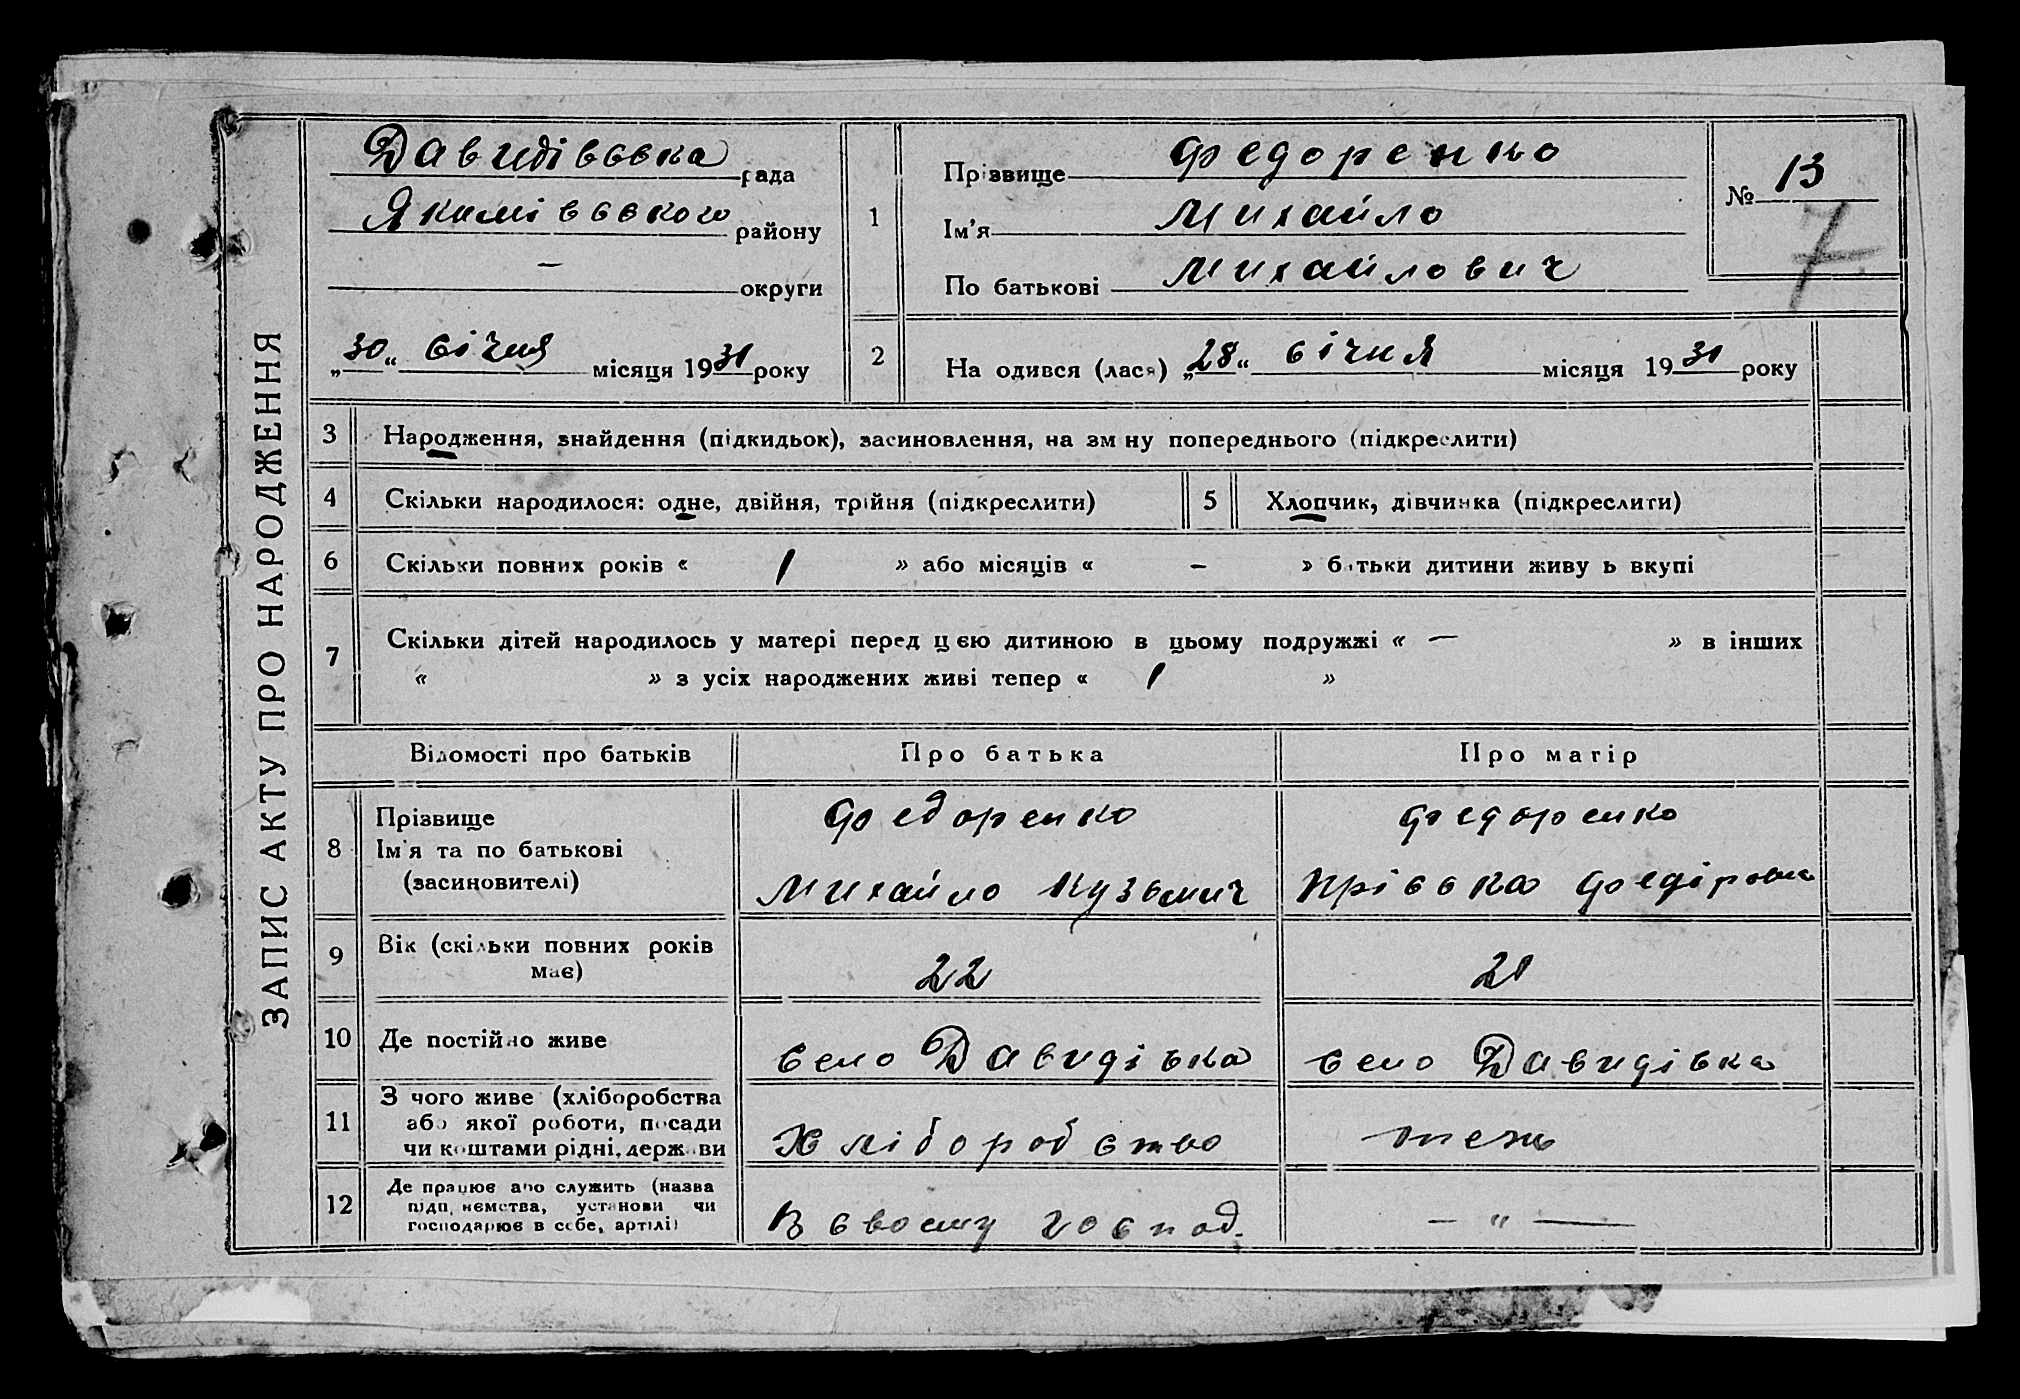 ЗАПИС АКТУ ПРО НАРОДЖЕННЯ
Давидівська рада
Якимівського району
— округи
„30“ січня місяця 1931 року
1
Прізвище Федоренко
Ім'я Михайло
По батькові Михайлович
№ 13
7
2
На одився (лася) „28“ січня місяця 1931 року
3 Народження, знайдення (підкидьок), засиновлення, на зм ну попереднього (підкреслити)
4 Скільки народилося: одне, двійня, трійня (підкреслити)
5 Хлопчик, дівчинка (підкреслити)
6 Скільки повних років « 1 » або місяців « - » батьки дитини живу ь вкупі
7 Скільки дітей народилось у матері перед ц єю дитиною в цьому подружжі « — » в інших
« » з усіх народжених живі тепер « 1 »
Відомості про батьків Про батька Про матір
8 Прізвище
Ім'я та по батькові
(засиновителі)
Федоренко
Михайло Кузьмич
Федоренко
Пріська Федіровна
9 Вік (скільки повних років
має)
22
21
10 Де постійно живе
село Давидівка
село Давидівка
11 З чого живе (хліборобства
або якої роботи, посади
чи коштами рідні, держави
Хліборобство
теж
12 Де працює або служить (назва
підп, немства, установи чи
господарює в себе, артілі)
В своєму господ.
— " —